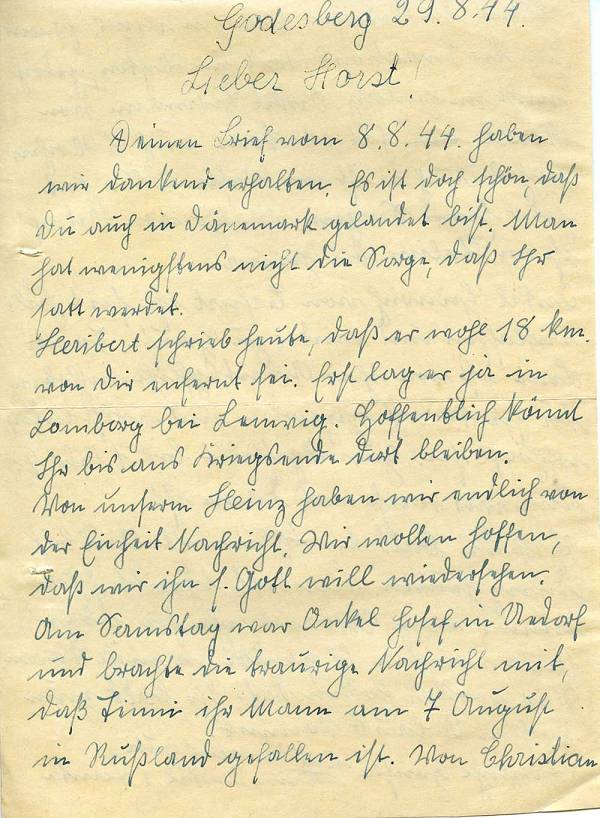 Godesberg 29.8.44.
Lieber Horst!
Deinen Brief vom 8.8.44. haben
wir dankend erhalten. Es ist doch schön, daß
Du auch in Dänemark gelandet bist. Man
hat wenigstens nicht die Sorge, daß Ihr
satt werdet.
Heribert schrieb heute, daß er wohl 18 km.
von Dir enfernt sei. Erst lag er ja in
Lomborg bei Lemvig. Hoffentlich könnt
Ihr bis ans Kriegsende dort bleiben.
Von unserm Heinz haben wir endlich von
der Einheit Nachricht. Wir wollen hoffen,
daß wir ihn s. Gott will wiedersehen.
Am Samstag war Onkel Josef in Uedorf
und brachte die traurige Nachricht mit,
daß Finni ihr Mann am 7 August
in Rußland gefallen ist. Von Christian